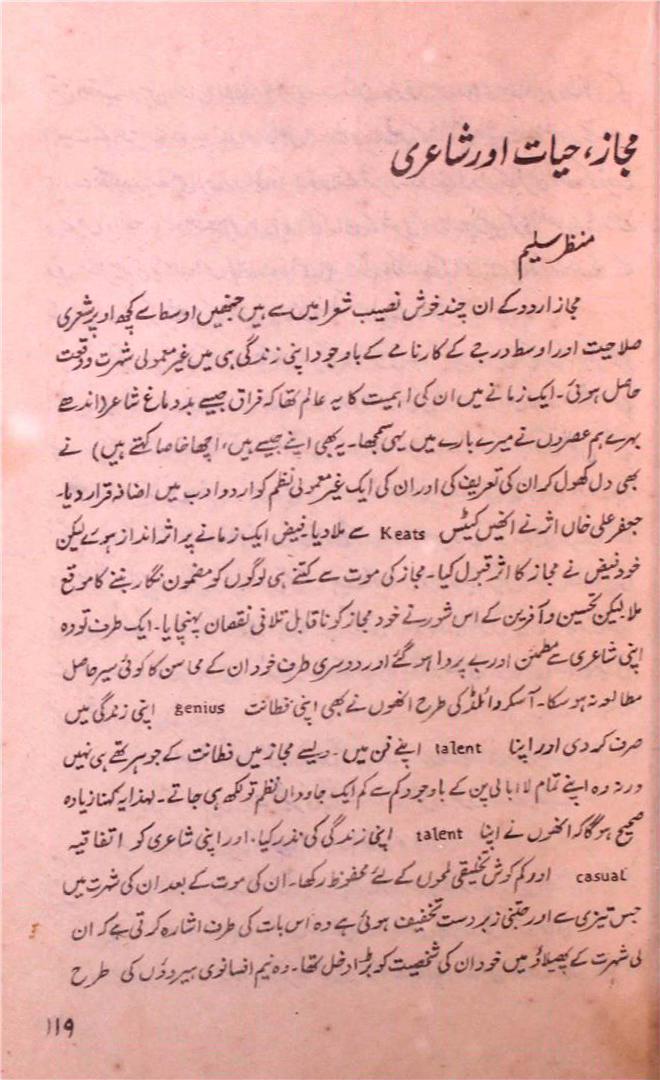 مجاز، حیات اور شاعری
منظر سلیم
مجاز اردو کے ان چند خوش نصیب شعرا میں سے ہیں جنھیں اوسط سے کچھ اوپر شعری
صلاحیت اور اوسط درجے کے کارنامے کے باوجود اپنی زندگی ہی میں غیر معمولی شہرت و وقعت
حاصل ہوئی۔ ایک زمانے میں ان کی اہمیت کا یہ عالم تھا کہ فراق جیسے بد دماغ شاعر (اندھے
بہرے ہم عصروں نے میرے بارے میں یہی سمجھا۔ یہ بھی اپنے جیسے ہیں، اچھا خاصا کہتے ہیں) نے
بھی دل کھول کر ان کی تعریف کی اور ان کی ایک غیر معمولی نظم کو اردو ادب میں اضافہ قرار دیا۔
جعفر علی خاں اثر نے انھیں کیٹس Keats سے ملا دیا۔ فیض ایک زمانے پر اثر انداز ہوئے لیکن
خود فیض نے مجاز کا اثر قبول کیا۔ مجاز کی موت سے کتنے ہی لوگوں کو مضمون نگار بننے کا موقع
ملا لیکن تحسین و آفرین کے اس شور نے خود مجاز کو ناقابل تلافی نقصان پہنچایا۔ ایک طرف تو وہ
اپنی شاعری سے مطمئن اور بے پروا ہو گئے اور دوسری طرف خود ان کے محاسن کا کوئی سیر حاصل
مطالعہ نہ ہو سکا۔ آسکر وائلڈ کی طرح انھوں نے بھی اپنی فطانت genius اپنی زندگی میں
صرف کر دی اور اپنا talent اپنے فن میں۔ ویسے مجاز میں فطانت کے جوہر تھے ہی نہیں
ورنہ وہ اپنے تمام لا ابالی پن کے باوجود کم سے کم ایک جاوداں نظم تو لکھ ہی جاتے۔ لہٰذا یہ کہنا زیادہ
صحیح ہوگا کہ انھوں نے اپنا talent اپنی زندگی کی نذر کیا، اور اپنی شاعری کو اتفاقیہ
casual اور کم کوش تخلیقی لمحوں کے لئے محفوظ رکھا۔ ان کی موت کے بعد ان کی شہرت میں
جس تیزی سے اور جتنی زبردست تخفیف ہوئی ہے وہ اس بات کی طرف اشارہ کرتی ہے کہ ان
لی شہرت کے پھیلاؤ میں خود ان کی شخصیت کو بڑا دخل تھا۔ وہ نیم افسانوی ہیروؤں کی طرح
۱۱۹